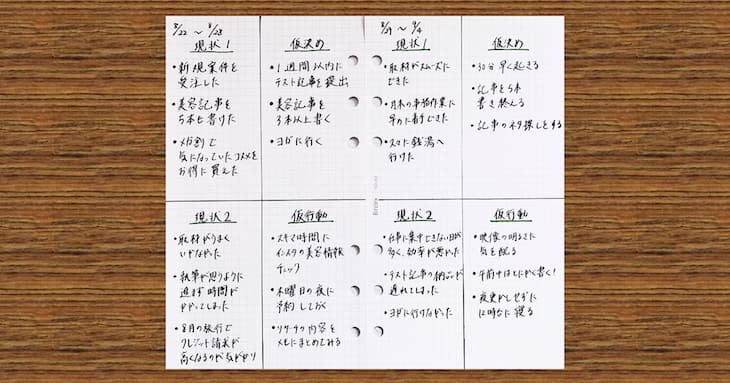 8/22 ～ 8/28
現状1
・新規案件を
受注した
・美容記事を
5本も書けた
・メガ割で
気になっていたコスメを
お得に買えた
仮決め
・1週間以内に
テスト記事を提出
・美容記事を
3本以上書く
・ヨガに行く
現状2
・取材がうまく
いかなかった
・執筆が思うように
進まず時間が
かかってしまった
・8月の旅行で
クレジット請求が
高くなるのが気がかり
仮行動
・スキマ時間に
インスタの美容情報
チェック
・木曜日の夜に
予約しておく
・リサーチの内容を
メモにまとめてみる
8/29 ～ 9/4
現状1
・取材がスムーズに
できた
・月末の事務作業に
早めに着手できた
・久々に銭湯へ
行けた
仮決め
・30分早く起きる
・記事を5本
書き終える
・記事のネタ探しをする
現状2
・仕事に集中できない日が
多く、効率が悪かった
・テスト記事の納品が
遅れてしまった
・ヨガに行けなかった
仮行動
・映像の明るさに
気を配る
・午前中はとにかく書く!
・夜更かしせずに
12時台に寝る